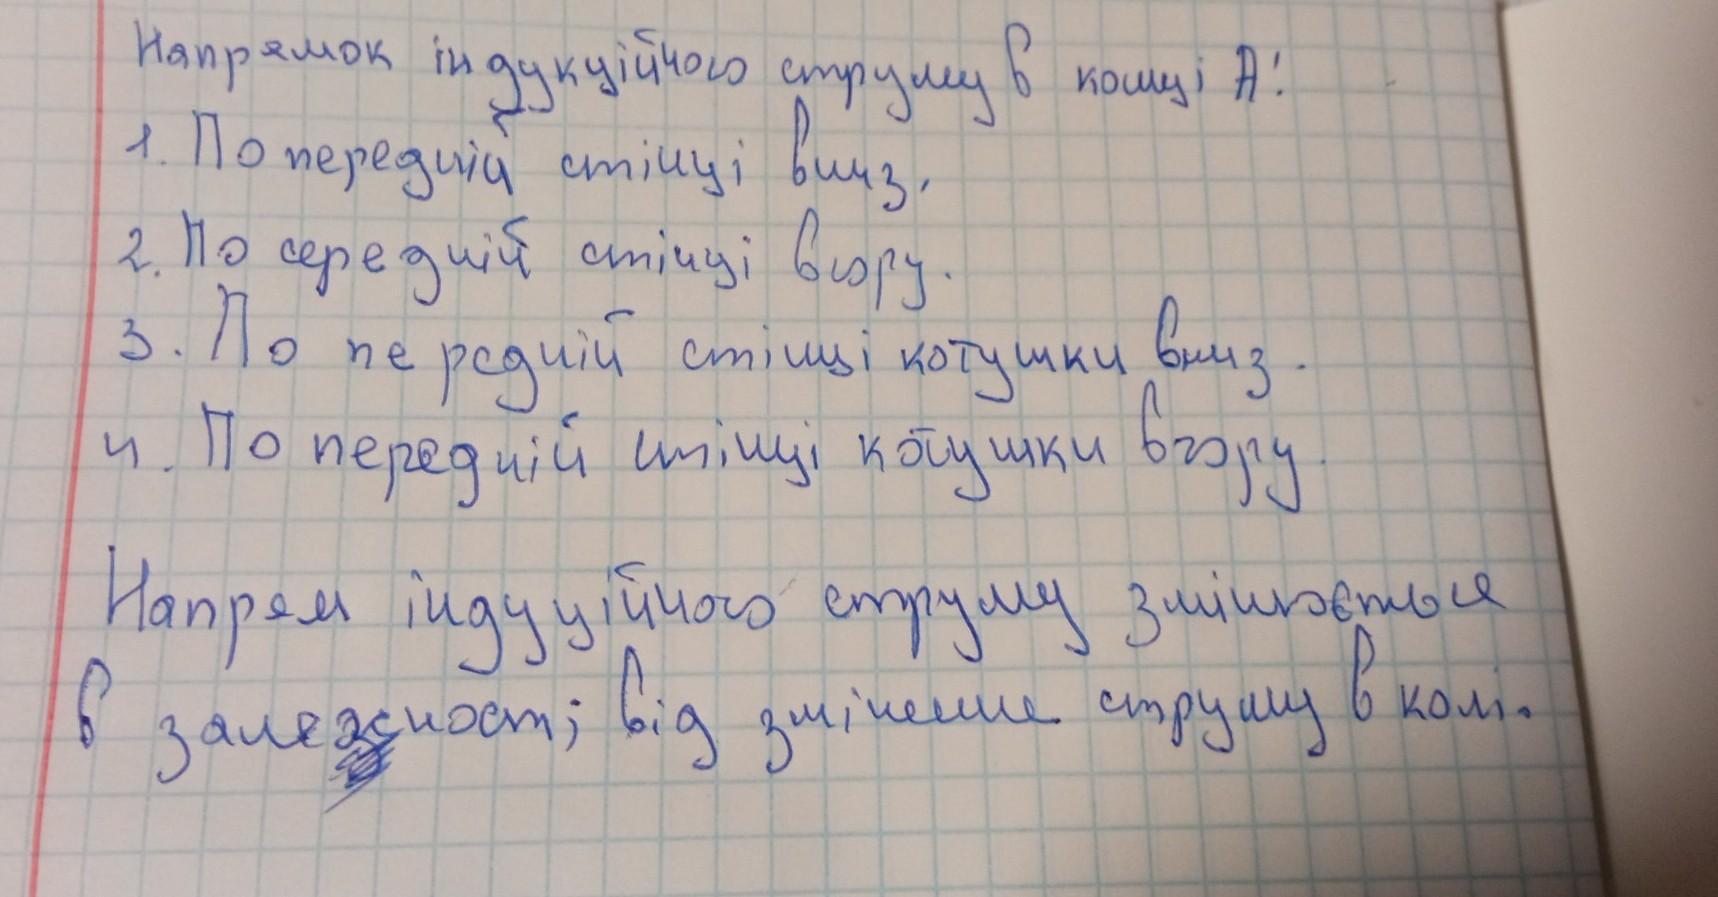 Напрямок індукційного струму в кошці А:
1. По передній стінці вниз.
2. По середній стінці вгору.
3. По передній стінці котушки вниз.
4. По передній стінці котушки вгору.
Напрям індуційного струму змінюється
в залежності від змінення струму в колі.